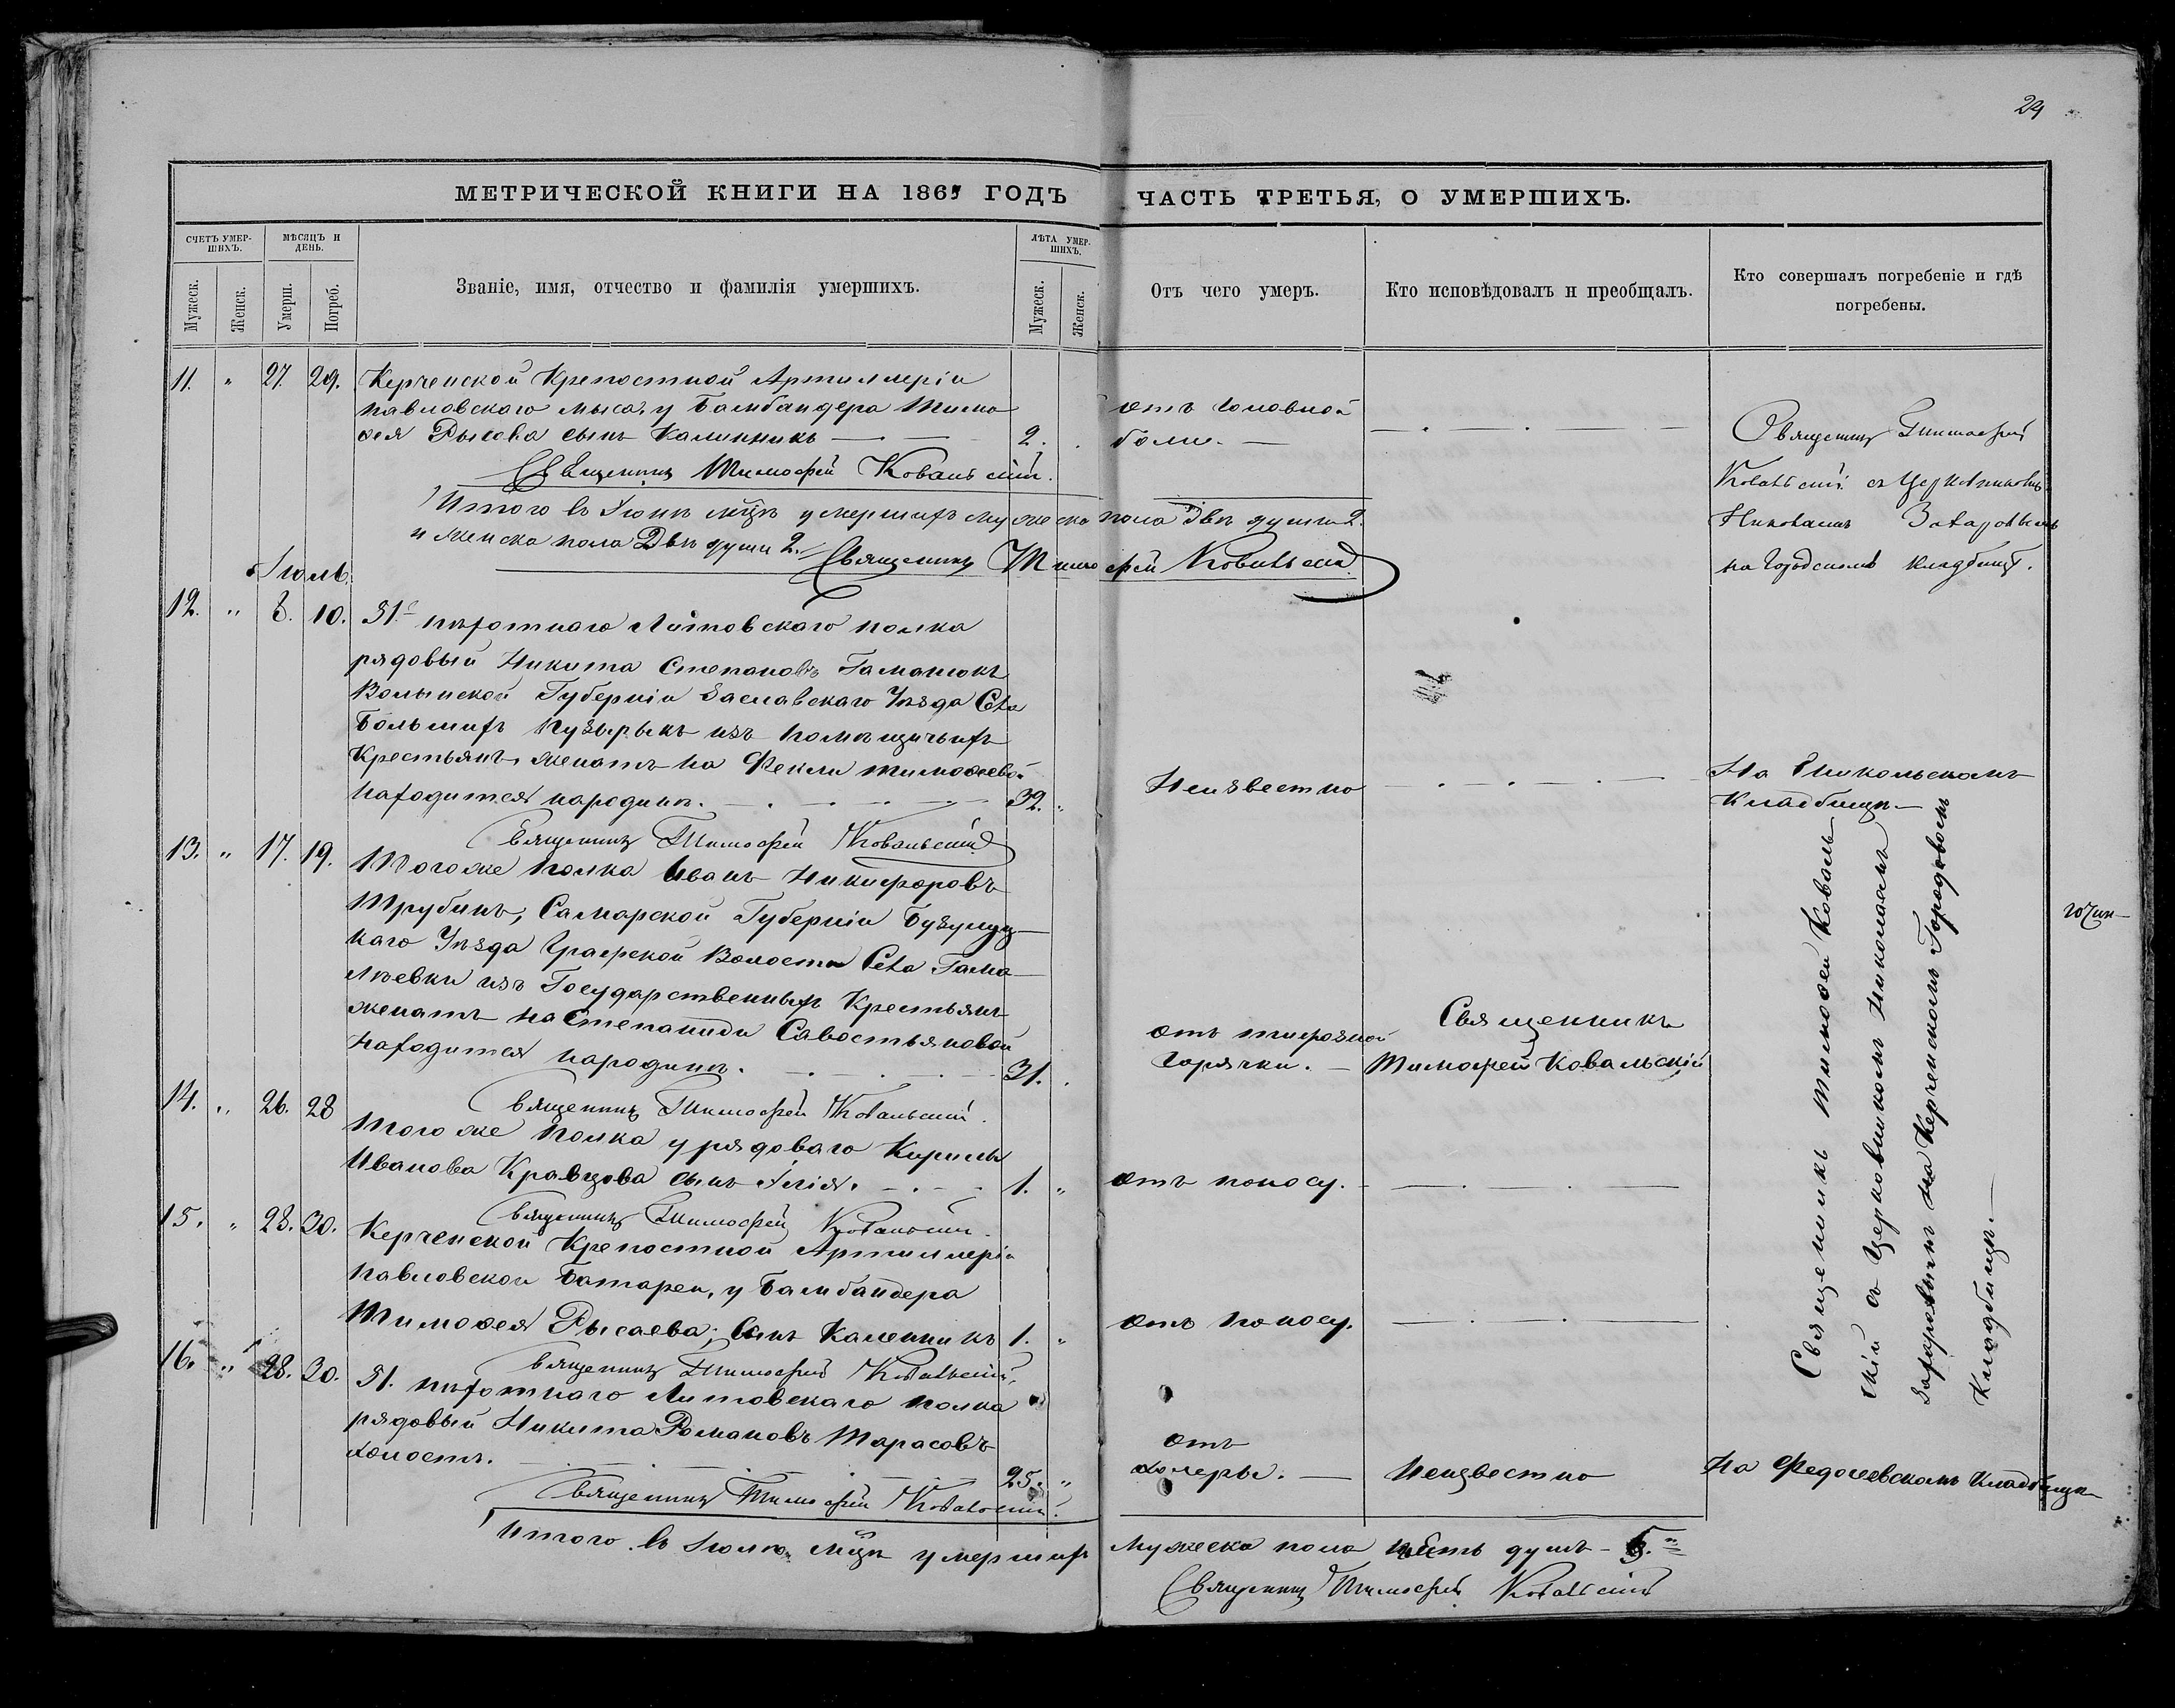 24
МЕТРИЧЕСКОЙ КНИГИ НА 1867 ГОДЪ ЧАСТЬ ТРЕТЬЯ, О УМЕРШИХЪ.
СЧЕТЪ УМЕР-
ШИХЪ.
МѢСЯЦЪ И
ДЕНЬ.
Званіе, имя, отчество и фамилія умершихъ.
ЛѢТА УМЕР-
ШИХЪ.
Отъ чего умеръ.
Кто исповѣдовалъ и преобщалъ.
Кто совершалъ погребеніе и гдѣ
погребены.
Мужеск.
Женск.
Умерш.
Погреб.
Мужеск.
Женск.
11. " 27. 29. Керченской Крепостной Артиллеріи
павловскаго мыса, у Бамбандера Тимо
ѳея Рысева сынъ Калинникъ 2.
отъ головной
боли.
Священникъ Тимофей Ковальскій
с Церковникомъ
Николаемъ Захаровымъ
на Городскомъ кладбищѣ.
Священникъ Тимофей Ковальскій.
Итого въ Іюнѣ мцѣ умершихъ мужеска пола двѣ души 2.
и женска пола Двѣ души 2. Священникъ Тимофей Ковальскій
Іюль.
12. " 8. 10. 51г пѣхотнаго Литовскаго полка
рядовый Никита Степановъ Гаманюкъ
Волынской Губерніи Заславскаго Уѣзда Села
Большихъ Пузырькъ изъ помѣщичьихъ
Крестьянъ, женатъ на Фекли тимоѳеевой
находится народинѣ. 32. "
Неизвестно
На Еникольскомъ
Кладбищѣ
Священникъ Тимофей Ковальскій
13. " 17. 19. Того же полка Иванъ Никифоровъ
Трубинъ, Самарской Губерніи Бузулуц-
каго Уѣзда Графской Волости Села Гама-
лѣевки изъ Государственныхъ Крестьянъ
женатъ на Степаниди Савостьяновой
находится народинѣ. 31.
отъ тифозной
горячки.
Священникъ
Тимофей Ковальскій
Священникъ Тимофей Ковальскій.
14. " 26. 28 Того же полка у рядоваго Кирилы
Иванова Кравцова сынъ Илія. 1. "
отъ поносу.
Священникъ Тимофей Ковальскій.
15. " 28. 30. Керченской Крепостной Артиллеріи
павловской Батареи, у Бамбандера
Тимоѳея Рысаева; Сынъ Каленникъ 1. "
отъ поносу.
Священникъ Тимофей Ковальскій.
16. " 28. 30. 51. пѣхотнаго Литовскаго полка
рядовый Никита Романовъ Тарасовъ
холостъ. 25. "
отъ
холеры.
Неизвестно
На Федосеевскомъ Кладбищѣ
Священникъ Тимофей Ковальскій.
Священникъ Тимоѳей Коваль
скій съ Церковникомъ Николаемъ
Захаровымъ на Керченскомъ Городовомъ
Кладбищѣ.
Итого въ Іюлѣ мцѣ умершихъ мужеска пола пять душъ - 5."
Священникъ Тимофей Ковальскій